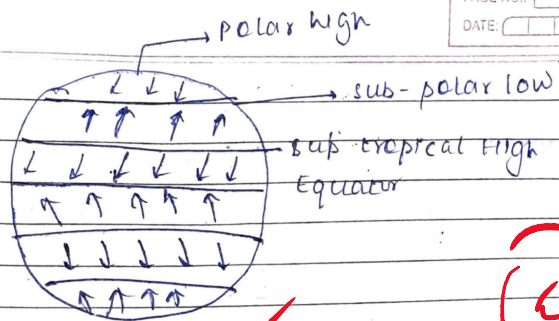 DATE:
polar high
sub-polar low
sub tropical High
Equator